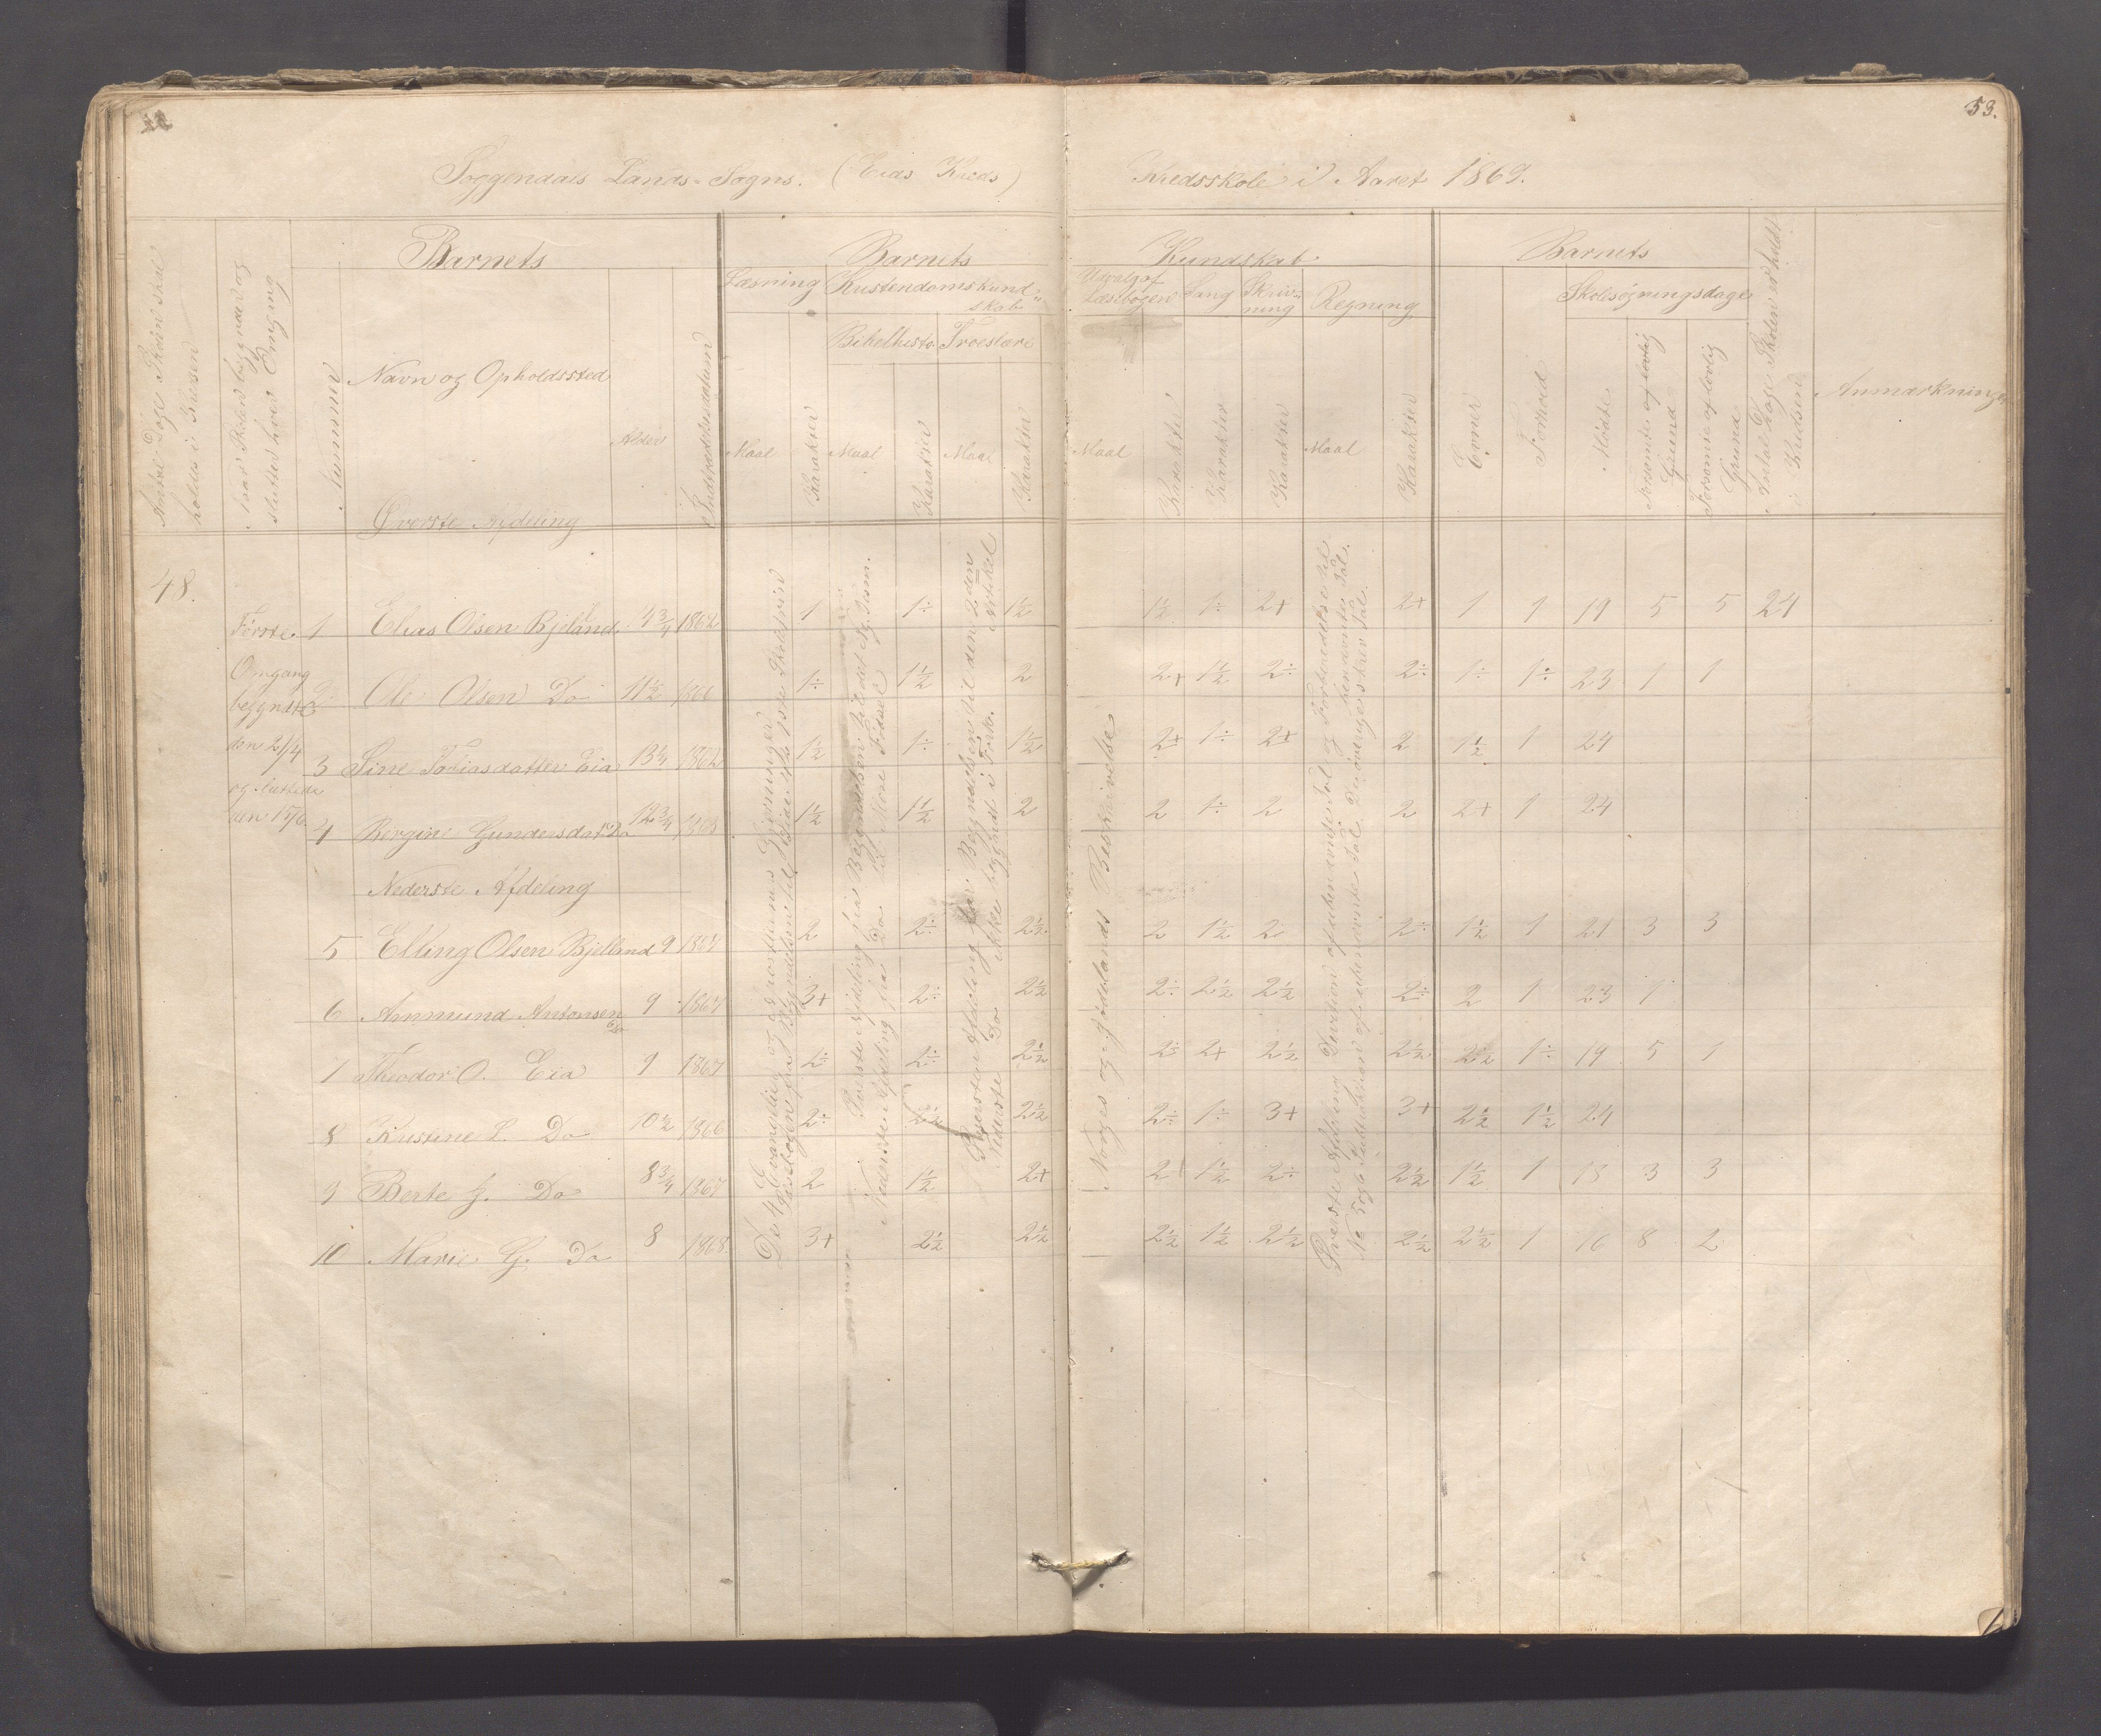 53.
Soggendals Lands-Sogns. (Eids Kreds) Kredsskole i Aaret 1869.
Antal Dage Skolen skal holdes i Kredsen
Naar Skolen begyndes og sluttes hver Omgang
Nummer
Barnets
Navn og Opholdssted
Alder
Indtrædelsesdatum
Barnets
Læsning Kristendomskund-
skab
Bibelhisto Troeslære
Maal Karakter Maal Karakter Maal Karakter
Kundskab
Udvalg af Læsebogen Sang Skriv-
ning Regning
Maal Karakter Karakter Karakter Maal Karakter
Barnets
Evner Forhold
Skolesøgningsdage
Mødte
Forsømte af lovlig Grund
Forsømte af ulovlig Grund
Antal Dage Skolen er holdt i Kredsen
Anmærkninger
Øverste Afdeling
48.
Første
Omgang
begyndte
den 21/4
og sluttede
den 15/6
1 Elias Olsen Bjelland 14 3/4 1862 1 1÷ 1½ 1½ 1÷ 2+ 2+ 1 1 19 5 5 24
2 Ole Olsen Do 11½ 1866 1÷ 1½ 2 2+ 1½ 2÷ 2÷ 1÷ 1÷ 23 1 1
3 Sine Tobiasdatter Eia 13¼ 1862 1½ 1÷ 1½ 2+ 1÷ 2+ 2 1½ 1 24
4 Bergine Gundersdat Do 12 3/4 1863 1½ 1½ 2 2 1÷ 2 2 2+ 1 24
Nederste Afdeling
5 Elling Olsen Bjelland 9 1867 2 2÷ 2½ 2 1½ 2 2÷ 1½ 1 21 3 3
6 Ammund Antonsen Do 9 1867 3+ 2÷ 2½ 2÷ 2½ 2½ 2÷ 2 1 23 1
7 Theodor O. Eia 9 1867 2÷ 2÷ 2½ 2÷ 2+ 2½ 2½ 2½ 1÷ 19 5 1
8 Kristine L. Do 10½ 1866 2÷ 2½ 2½ 2÷ 1÷ 3+ 3+ 2½ 1½ 24
9 Berte G. Do 8 3/4 1867 2 1½ 2+ 2 1½ 2÷ 2½ 1½ 1 18 3 3
10 Marie G. Do 8 1868 3+ 2½ 2½ 2½ 1½ 2½ 2½ 2½ 1 16 8 2
De 4 Evangelier og
Læsebogen fra Begyndelsen til
Øverste Afdeling fra Begyndelsen til
Nederste Afdeling fra Do til Mose Fødsel
Øverste Afdeling har Begyndelsen til den 2den Artikel
Nederste Do ikke begyndt i Fork.
Norges og Jødelands Beskrivelse
Øverste Afdeling Division af ubenævnte Tal og Forberedelse til benævnte Tal.